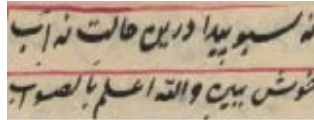 نه سبو پیدا درین حالت نه آب
خوش ببین والله اعلم بالصواب